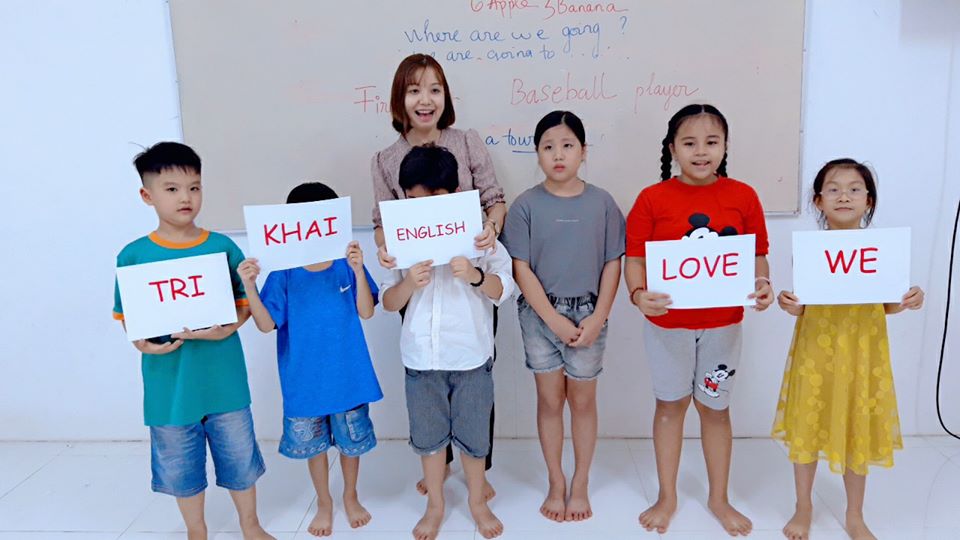 6 Apple 3 Banana
Where are we going ?
are going to .....
Baseball player
a
TRI
KHAI
ENGLISH
LOVE
WE